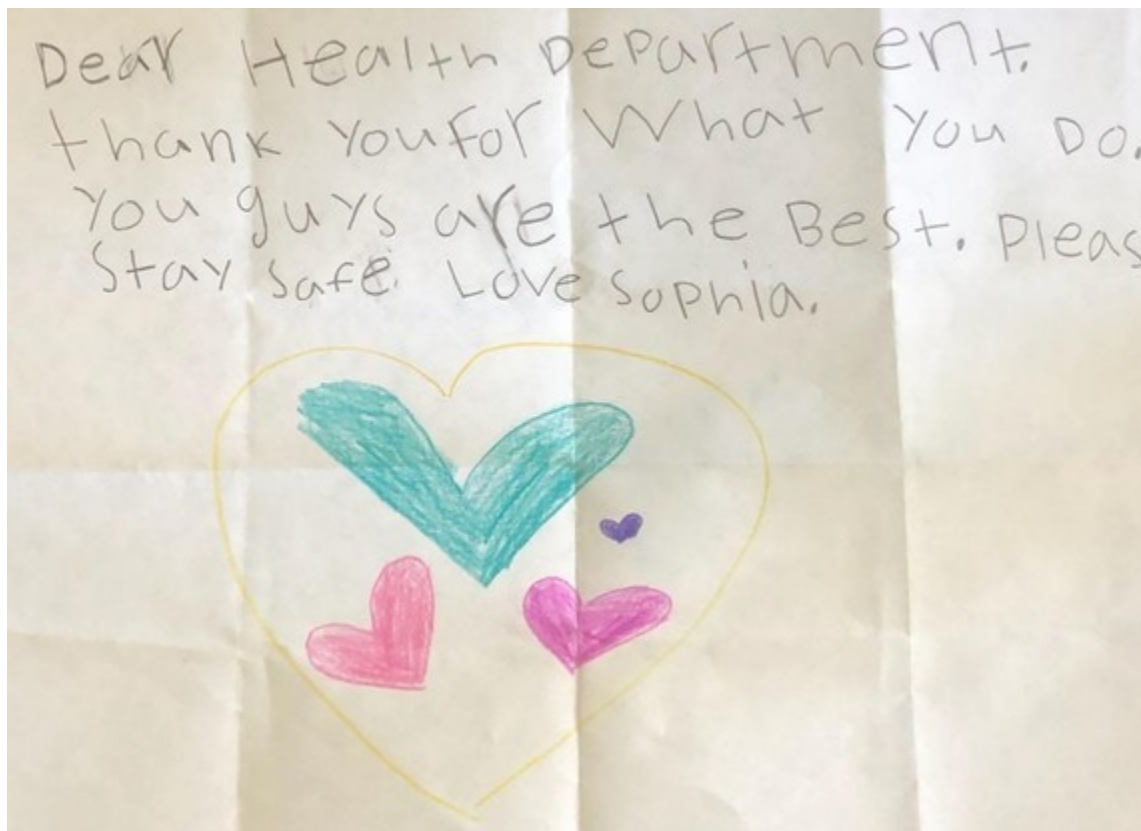 Dear Health Department.
thank you for What you Do.
You guys are the Best. Pleas
Stay safe. Love Sophia.